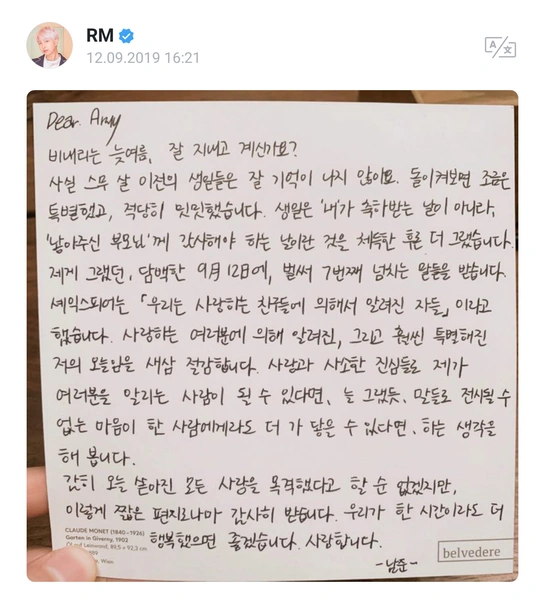 RM
12.09.2019 16:21
A 文
Dear. Army
비내리는 늦여름, 잘 지내고 계신가요?
사실 스무 살 이전의 생일들은 잘 기억이 나지 않아요. 돌이켜보면 조금은
특별했고, 적당히 밋밋했습니다. 생일은 '내'가 축하받는 날이 아니라,
'낳아주신 부모님'께 감사해야 하는 날이란 것을 체득한 후론 더 그랬습니다.
제게 그랬던, 담백한 9月 12日에, 벌써 7번째 넘치는 말들을 받습니다.
셰익스피어는 「우리는 사랑하는 친구들에 의해서 알려진 자들」이라고
했습니다. 사랑하는 여러분에 의해 알려진, 그리고 훨씬 특별해진
저의 오늘임을 새삼 절감합니다. 사랑과 사소한 진심들로 제가
여러분을 알리는 사람이 될 수 있다면, 늘 그랬듯, 말들로 전시될 수
없는 마음이 한 사람에게라도 더 가 닿을 수 있다면, 하는 생각을
해 봅니다.
감히 오늘 쏟아진 모든 사랑을 목격했다고 할 순 없겠지만,
이렇게 짧은 편지로나마 감사히 받습니다. 우리가 한 시간이라도 더
행복했으면 좋겠습니다. 사랑합니다.
-남준-
CLAUDE MONET (1840–1926)
Garten in Giverny, 1903
Leinwand, 89,5 x 92,3 cm
Wien
belvedere